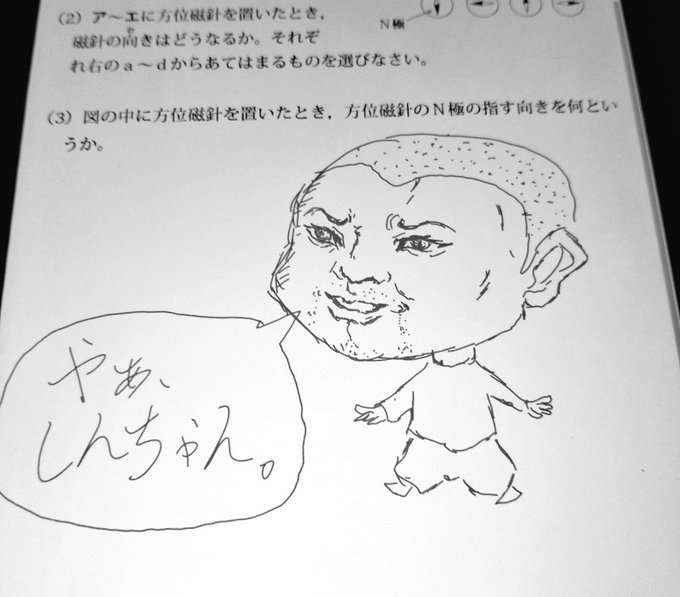 (2) ア～エに方位磁針を置いたとき，
N極
磁針の向きはどうなるか。それぞ
れ右のａ～ｄからあてはまるものを選びなさい。
(3) 図の中に方位磁針を置いたとき，方位磁針のＮ極の指す向きを何とい
うか。
やぁ、
しんちゃん。